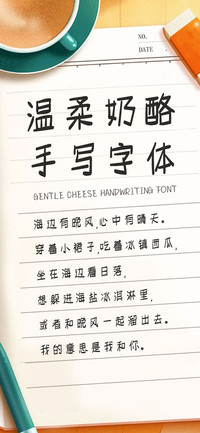 NO.
DATE
温柔奶酪
手写字体
GENTLE CHEESE HANDWRITING FONT
海边有晚风,心中有晴天。
穿着小裙子,吃着冰镇西瓜,
坐在海边看日落,
想躲进海盐冰淇淋里,
或者和晚风一起溜出去。
我的意思是我和你。